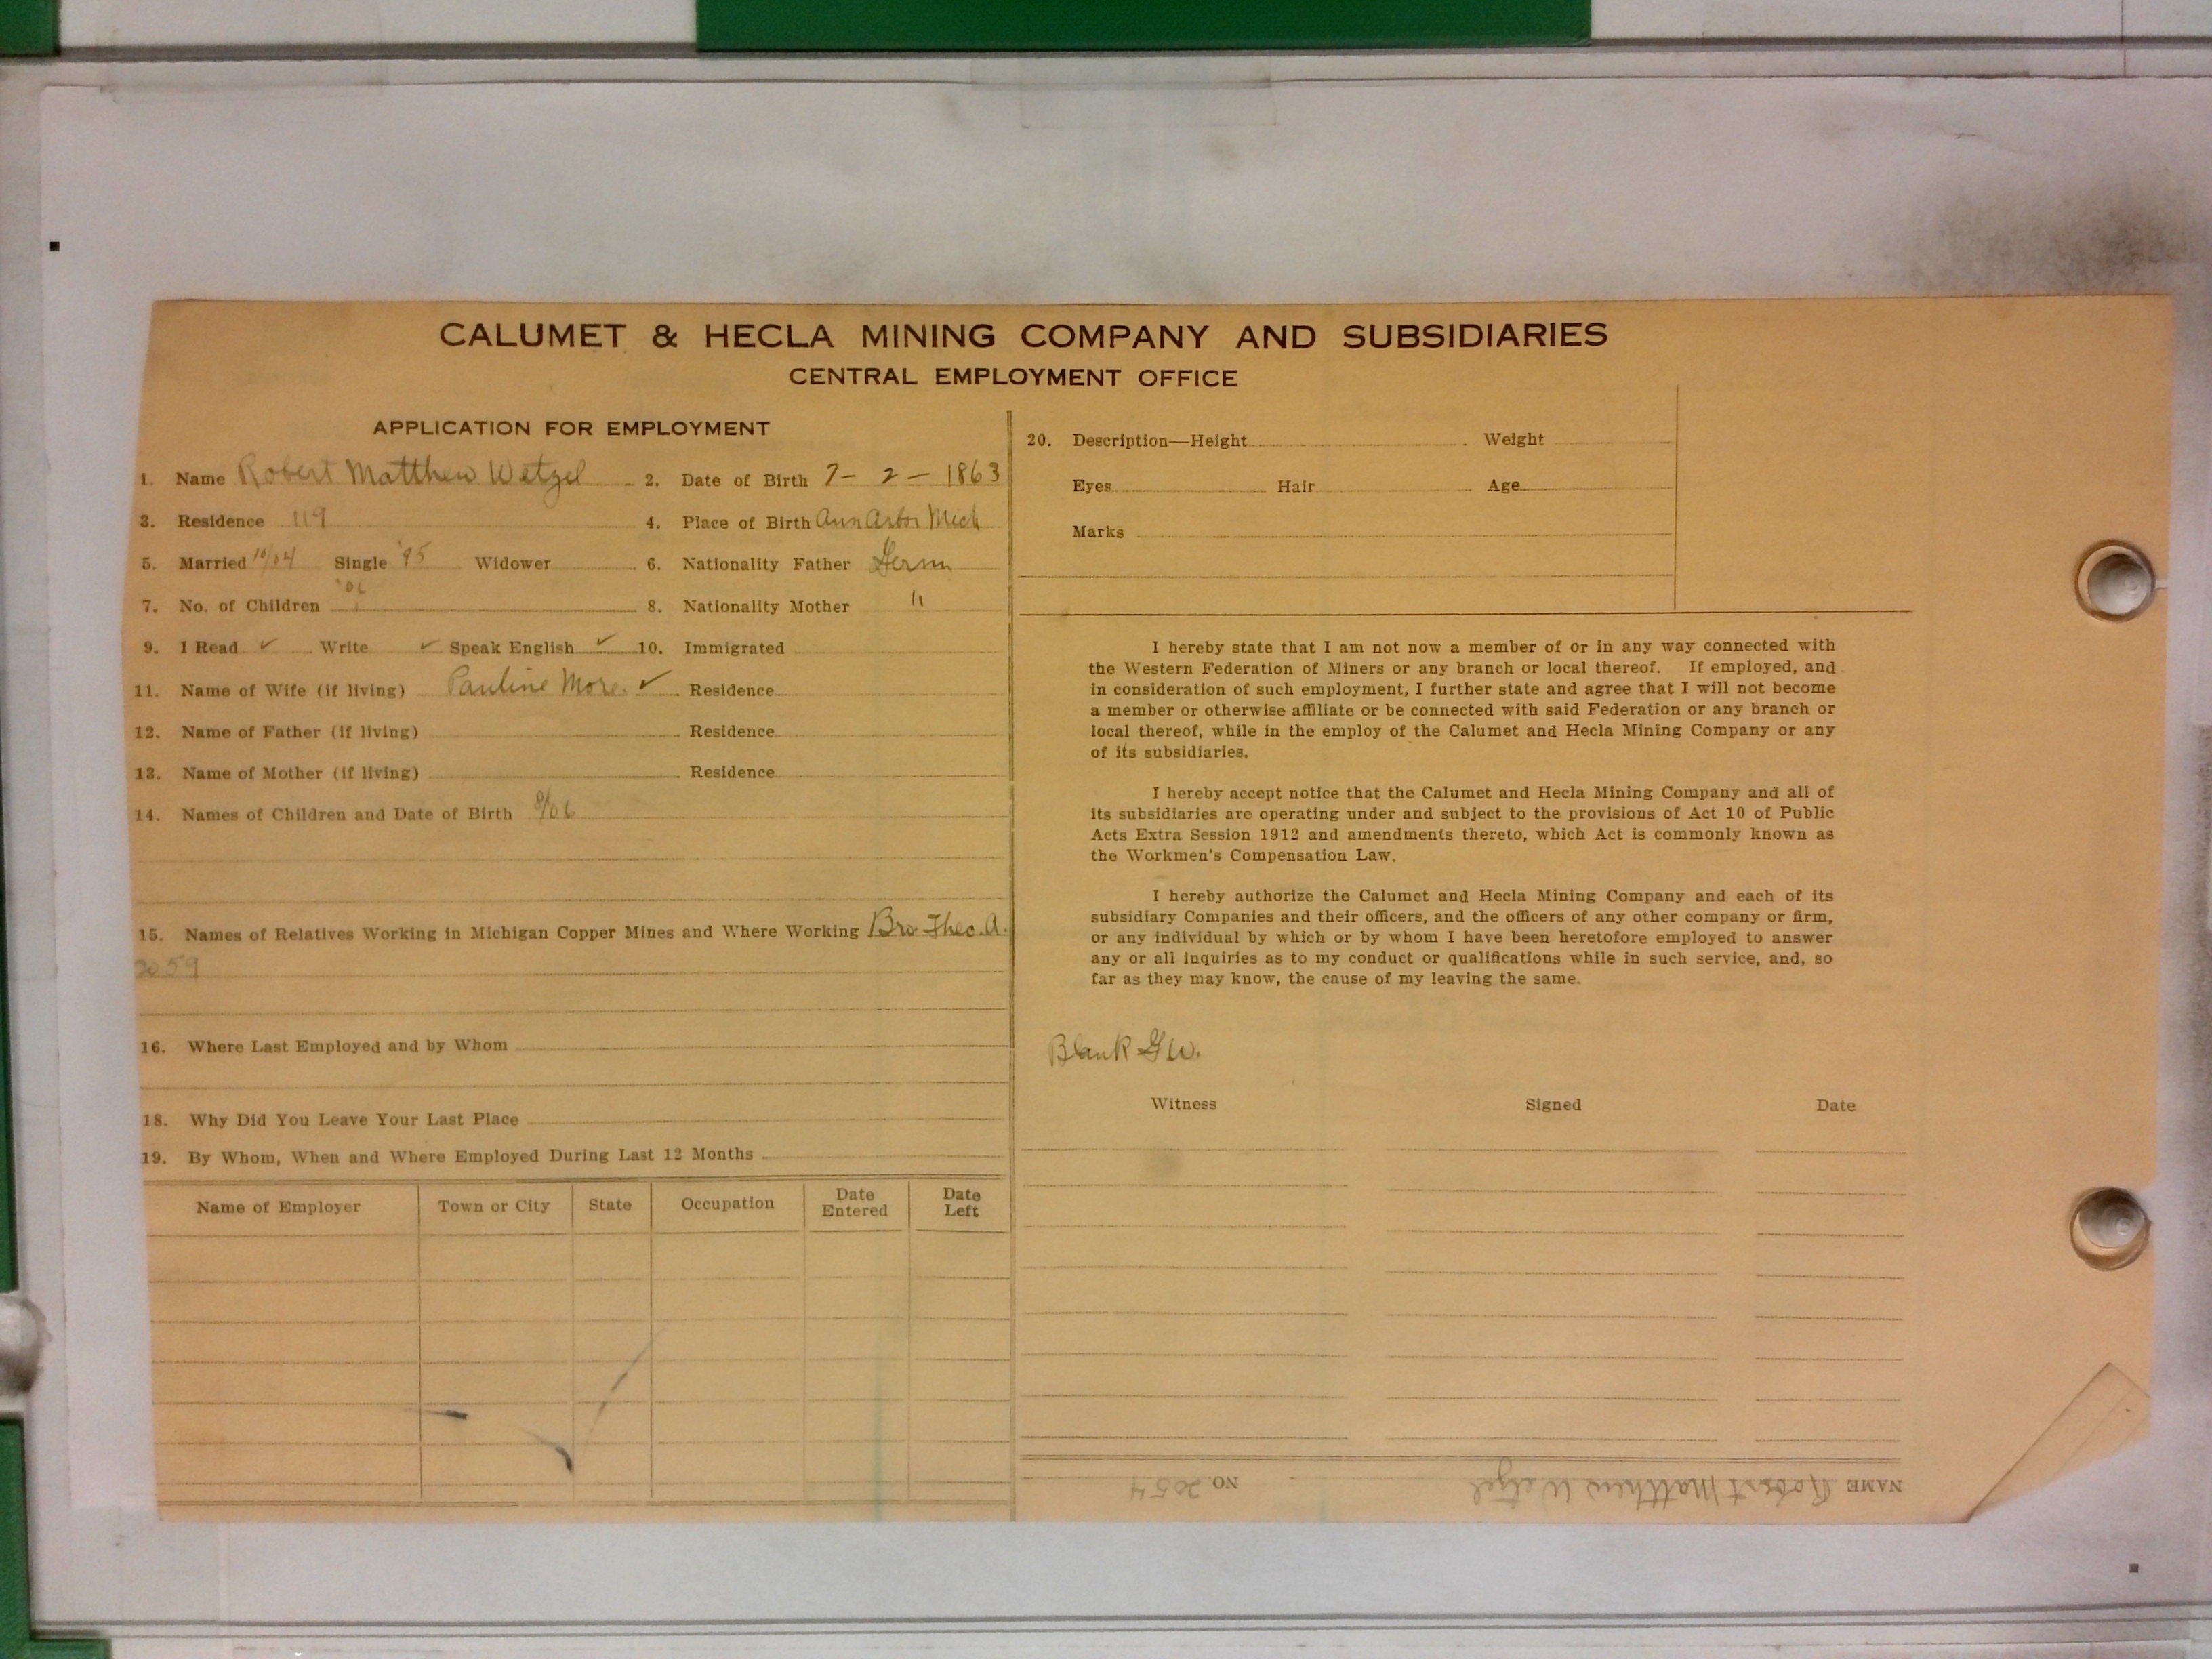 CALUMET & HECLA MINING COMPANY AND SUBSIDIARIES
CENTRAL EMPLOYMENT OFFICE
APPLICATION FOR EMPLOYMENT
1. Name Robert Matthew Wetzel 2. Date of Birth 7- 2- 1863
3. Residence 119 4. Place of Birth Ann Arbor Mich
5. Married 10/04 Single '95 Widower 6. Nationality Father Germn
'06
7. No. of Children 8. Nationality Mother "
9. I Read ✓ Write ✓ Speak English ✓ 10. Immigrated
11. Name of Wife (if living) Pauline More. ✓ Residence
12. Name of Father (if living) Residence
13. Name of Mother (if living) Residence
14. Names of Children and Date of Birth 8/06
15. Names of Relatives Working in Michigan Copper Mines and Where Working Bro Theo. A.
2059
16. Where Last Employed and by Whom
18. Why Did You Leave Your Last Place
19. By Whom, When and Where Employed During Last 12 Months
Name of Employer Town or City State Occupation Date Entered Date Left
20. Description—Height Weight
Eyes Hair Age
Marks
I hereby state that I am not now a member of or in any way connected with
the Western Federation of Miners or any branch or local thereof. If employed, and
in consideration of such employment, I further state and agree that I will not become
a member or otherwise affiliate or be connected with said Federation or any branch or
local thereof, while in the employ of the Calumet and Hecla Mining Company or any
of its subsidiaries.
I hereby accept notice that the Calumet and Hecla Mining Company and all of
its subsidiaries are operating under and subject to the provisions of Act 10 of Public
Acts Extra Session 1912 and amendments thereto, which Act is commonly known as
the Workmen's Compensation Law.
I hereby authorize the Calumet and Hecla Mining Company and each of its
subsidiary Companies and their officers, and the officers of any other company or firm,
or any individual by which or by whom I have been heretofore employed to answer
any or all inquiries as to my conduct or qualifications while in such service, and, so
far as they may know, the cause of my leaving the same.
Blank G W.
Witness Signed Date
NAME Robert Matthew Wetzel NO. 2054